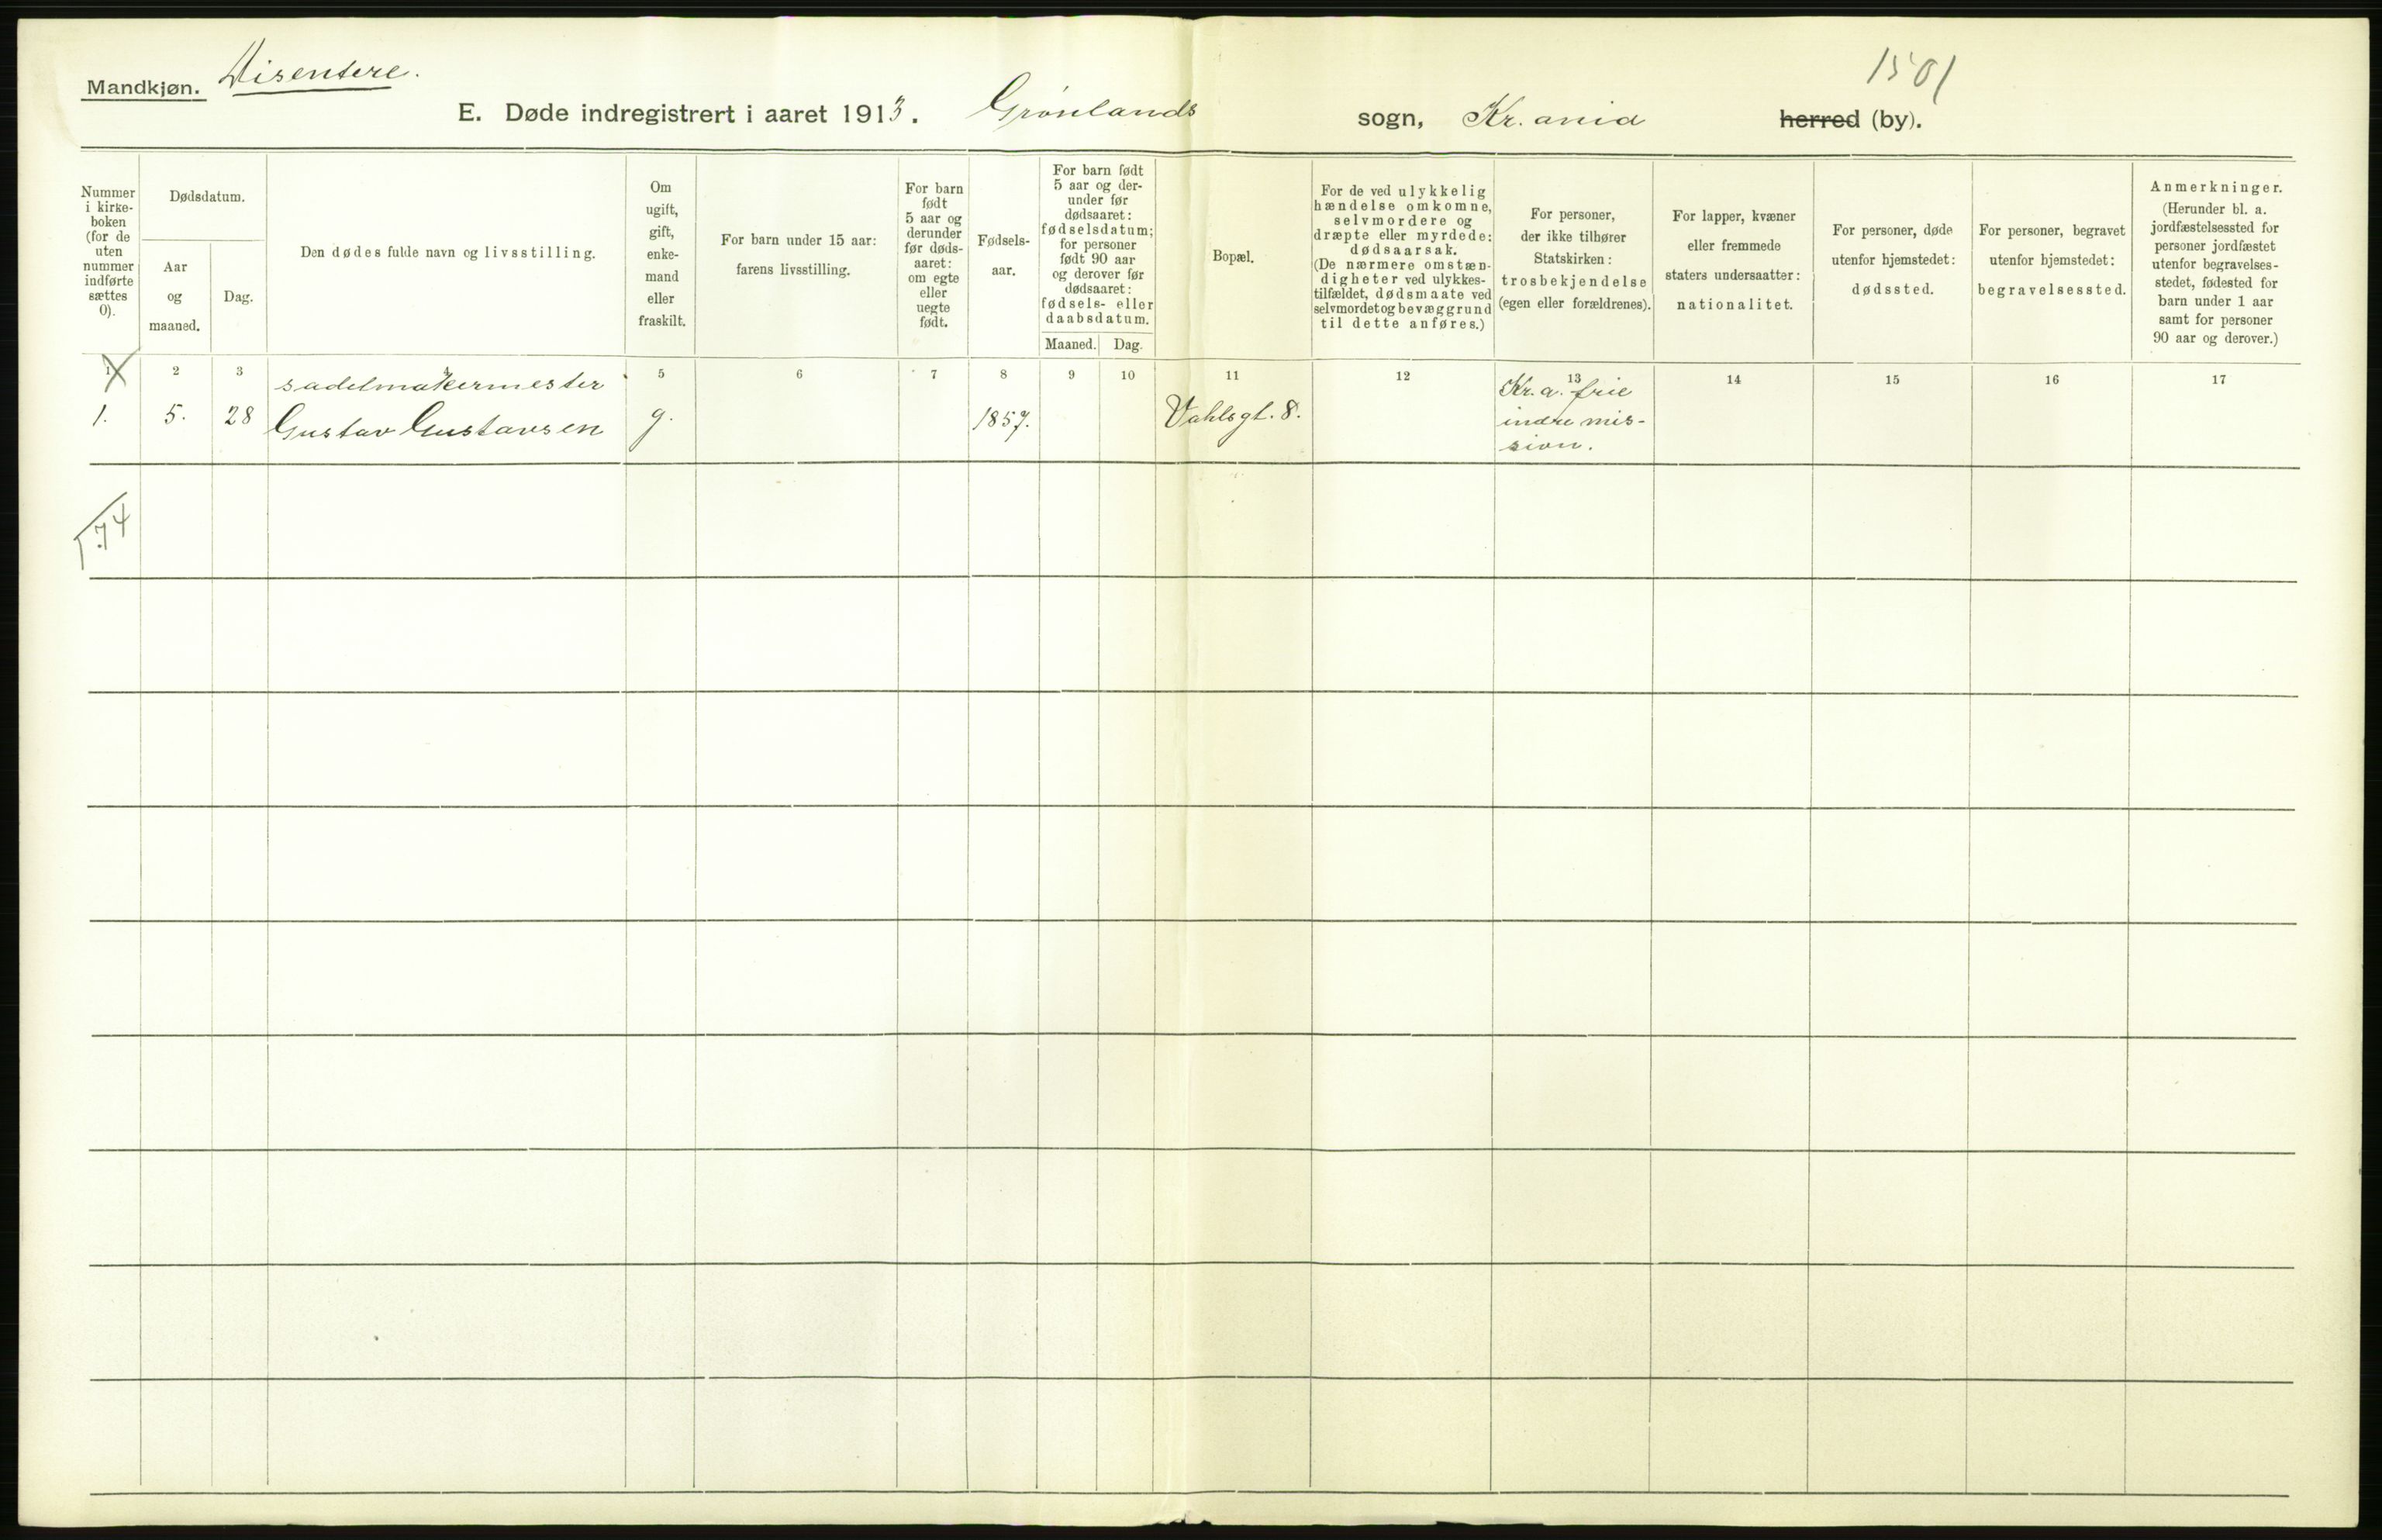 Mandkjøn. Disentere.
1501
E. Døde indregistrert i aaret 1913. Grønlands sogn, Kr.ania herred (by).
Nummer
i kirke-
boken
(for de
uten
nummer
indførte
sættes
0).
Dødsdatum.
Aar
og
maaned.
Dag.
Den dødes fulde navn og livsstilling.
Om
ugift,
gift,
enke-
mand
eller
fraskilt.
For barn under 15 aar:
farens livsstilling.
For barn
født
5 aar og
derunder
før døds-
aaret:
om egte
eller
uegte
født.
Fødsels-
aar.
For barn født
5 aar og der-
under før
dødsaaret:
fødselsdatum;
for personer
født 90 aar
og derover før
dødsaaret:
fødsels- eller
daabsdatum.
Maaned. Dag.
Bopæl.
For de ved ulykkelig
hændelse omkomne,
selvmordere og
dræpte eller myrdede:
dødsaarsak.
(De nærmere omstæn-
digheter ved ulykkes-
tilfældet, dødsmaate ved
selvmordet og bevæggrund
til dette anføres.)
For personer,
der ikke tilhører
Statskirken:
trosbekjendelse
(egen eller forældrenes).
For lapper, kvæner
eller fremmede
staters undersaatter:
nationalitet.
For personer, døde
utenfor hjemstedet:
dødssted.
For personer, begravet
utenfor hjemstedet:
begravelsessted.
Anmerkninger.
(Herunder bl. a.
jordfæstelsessted for
personer jordfæstet
utenfor begravelses-
stedet, fødested for
barn under 1 aar
samt for personer
90 aar og derover.)
1 2 3 4 5 6 7 8 9 10 11 12 13 14 15 16 17
sadelmakermester
1. 5. 28 Gustav Gustavsen g. 1857. Vahlsgt. 8.
Kr.a. frie
indre mis-
sion.
74